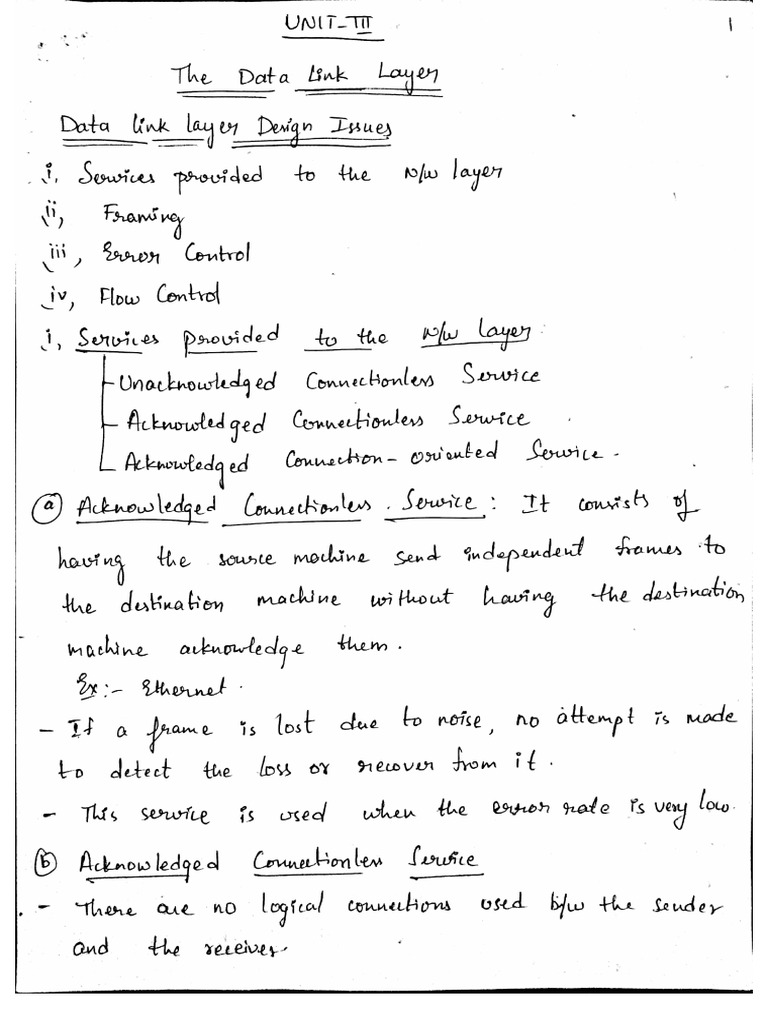 UNIT-III
1
The Data Link Layer
Data link layer Design Issues
i, Services provided to the N/w layer
ii, Framing
iii, Error Control
iv, Flow Control
i, Services provided to the N/w layer:
Unacknowledged Connectionless Service
Acknowledged Connectionless Service.
Acknowledged Connection-oriented Service.
(a) Acknowledged Connectionless Service: It consists of
having the source machine send independent frames to
the destination machine without having the destination
machine acknowledge them.
Ex:- Ethernet.
- If a frame is lost due to noise, no attempt is made
to detect the loss or recover from it.
- This service is used when the error rate is very low.
(b) Acknowledged Connectionless Service
- There are no logical connections used b/w the sender
and the receiver.